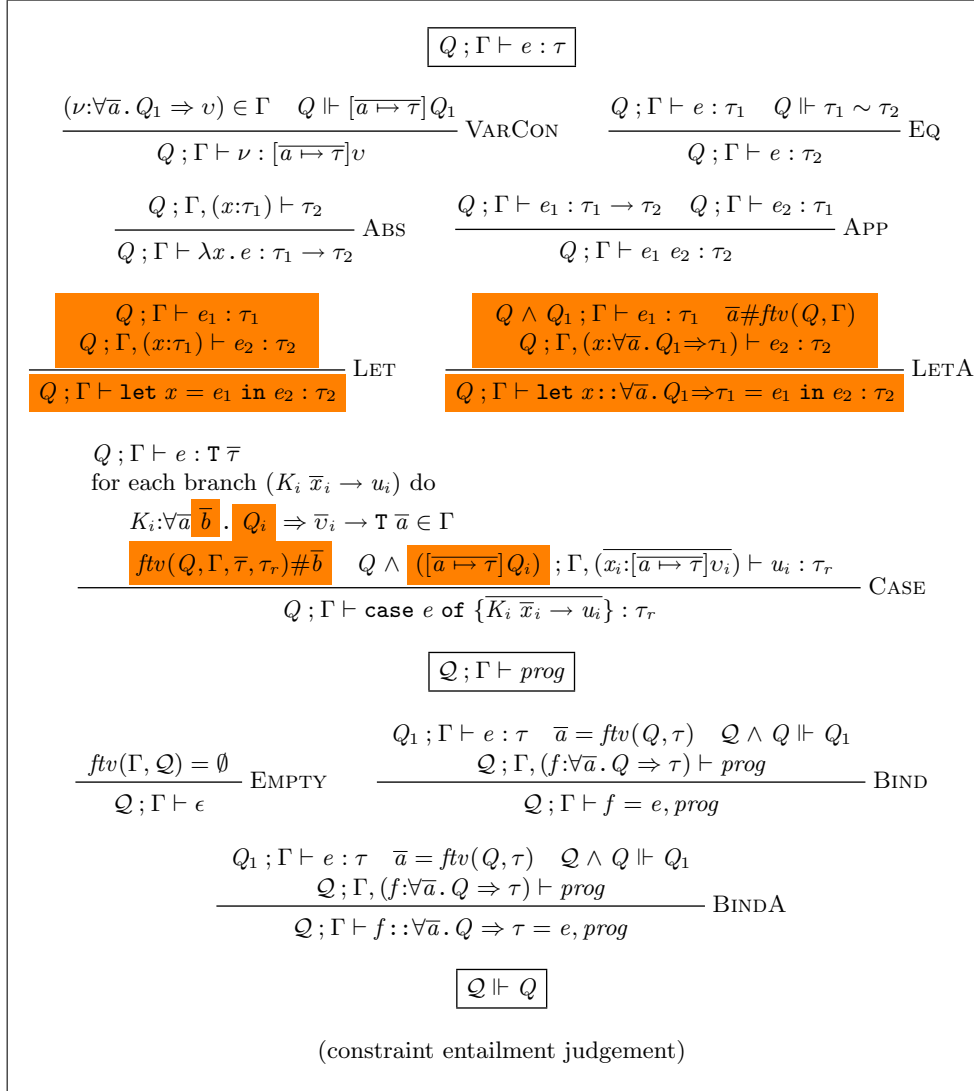 Q ; Γ ⊢ e : τ
(ν:∀a̅ . Q₁ ⇒ υ) ∈ Γ    Q ⊩ [a̅ ↦ τ̅]Q₁
Q ; Γ ⊢ ν : [a̅ ↦ τ̅]υ
VARCON
Q ; Γ ⊢ e : τ₁    Q ⊩ τ₁ ∼ τ₂
Q ; Γ ⊢ e : τ₂
EQ
Q ; Γ, (x:τ₁) ⊢ τ₂
Q ; Γ ⊢ λx . e : τ₁ → τ₂
ABS
Q ; Γ ⊢ e₁ : τ₁ → τ₂    Q ; Γ ⊢ e₂ : τ₁
Q ; Γ ⊢ e₁ e₂ : τ₂
APP
Q ; Γ ⊢ e₁ : τ₁
Q ; Γ, (x:τ₁) ⊢ e₂ : τ₂
Q ; Γ ⊢ let x = e₁ in e₂ : τ₂
LET
Q ∧ Q₁ ; Γ ⊢ e₁ : τ₁    a̅#ftv(Q, Γ)
Q ; Γ, (x:∀a̅ . Q₁⇒τ₁) ⊢ e₂ : τ₂
Q ; Γ ⊢ let x::∀a̅ . Q₁⇒τ₁ = e₁ in e₂ : τ₂
LETA
Q ; Γ ⊢ e : T τ̅
for each branch (Kᵢ x̅ᵢ → uᵢ) do
Kᵢ:∀a̅ b̅ . Qᵢ ⇒ υ̅ᵢ → T a̅ ∈ Γ
ftv(Q, Γ, τ̅, τᵣ)#b̅    Q ∧ ([a̅ ↦ τ̅]Qᵢ) ; Γ, (xᵢ:[a̅ ↦ τ̅]υᵢ) ⊢ uᵢ : τᵣ
Q ; Γ ⊢ case e of {Kᵢ x̅ᵢ → uᵢ} : τᵣ
CASE
𝒬 ; Γ ⊢ prog
ftv(Γ, 𝒬) = ∅
𝒬 ; Γ ⊢ ϵ
EMPTY
Q₁ ; Γ ⊢ e : τ    a̅ = ftv(Q, τ)    𝒬 ∧ Q ⊩ Q₁
𝒬 ; Γ, (f:∀a̅ . Q ⇒ τ) ⊢ prog
𝒬 ; Γ ⊢ f = e, prog
BIND
Q₁ ; Γ ⊢ e : τ    a̅ = ftv(Q, τ)    𝒬 ∧ Q ⊩ Q₁
𝒬 ; Γ, (f:∀a̅ . Q ⇒ τ) ⊢ prog
𝒬 ; Γ ⊢ f::∀a̅ . Q ⇒ τ = e, prog
BINDA
𝒬 ⊩ Q
(constraint entailment judgement)